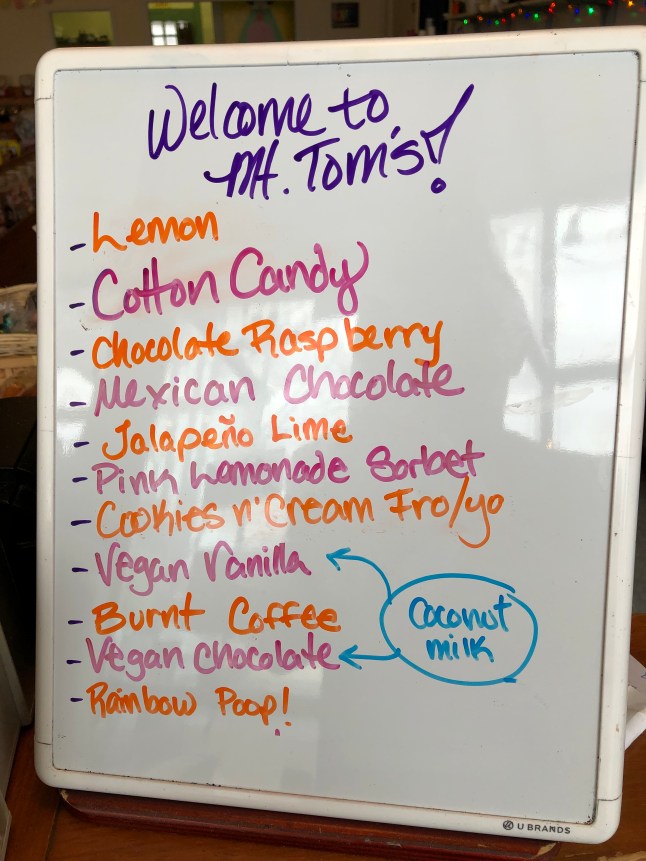 Welcome to
Mt. Tom's!
- Lemon
- Cotton Candy
- Chocolate Raspberry
- Mexican Chocolate
- Jalapeño Lime
- Pink Lemonade Sorbet
- Cookies n' Cream Fro/yo
- Vegan Vanilla
- Burnt Coffee
- Vegan Chocolate
- Rainbow Poop!
Coconut
milk
U BRANDS